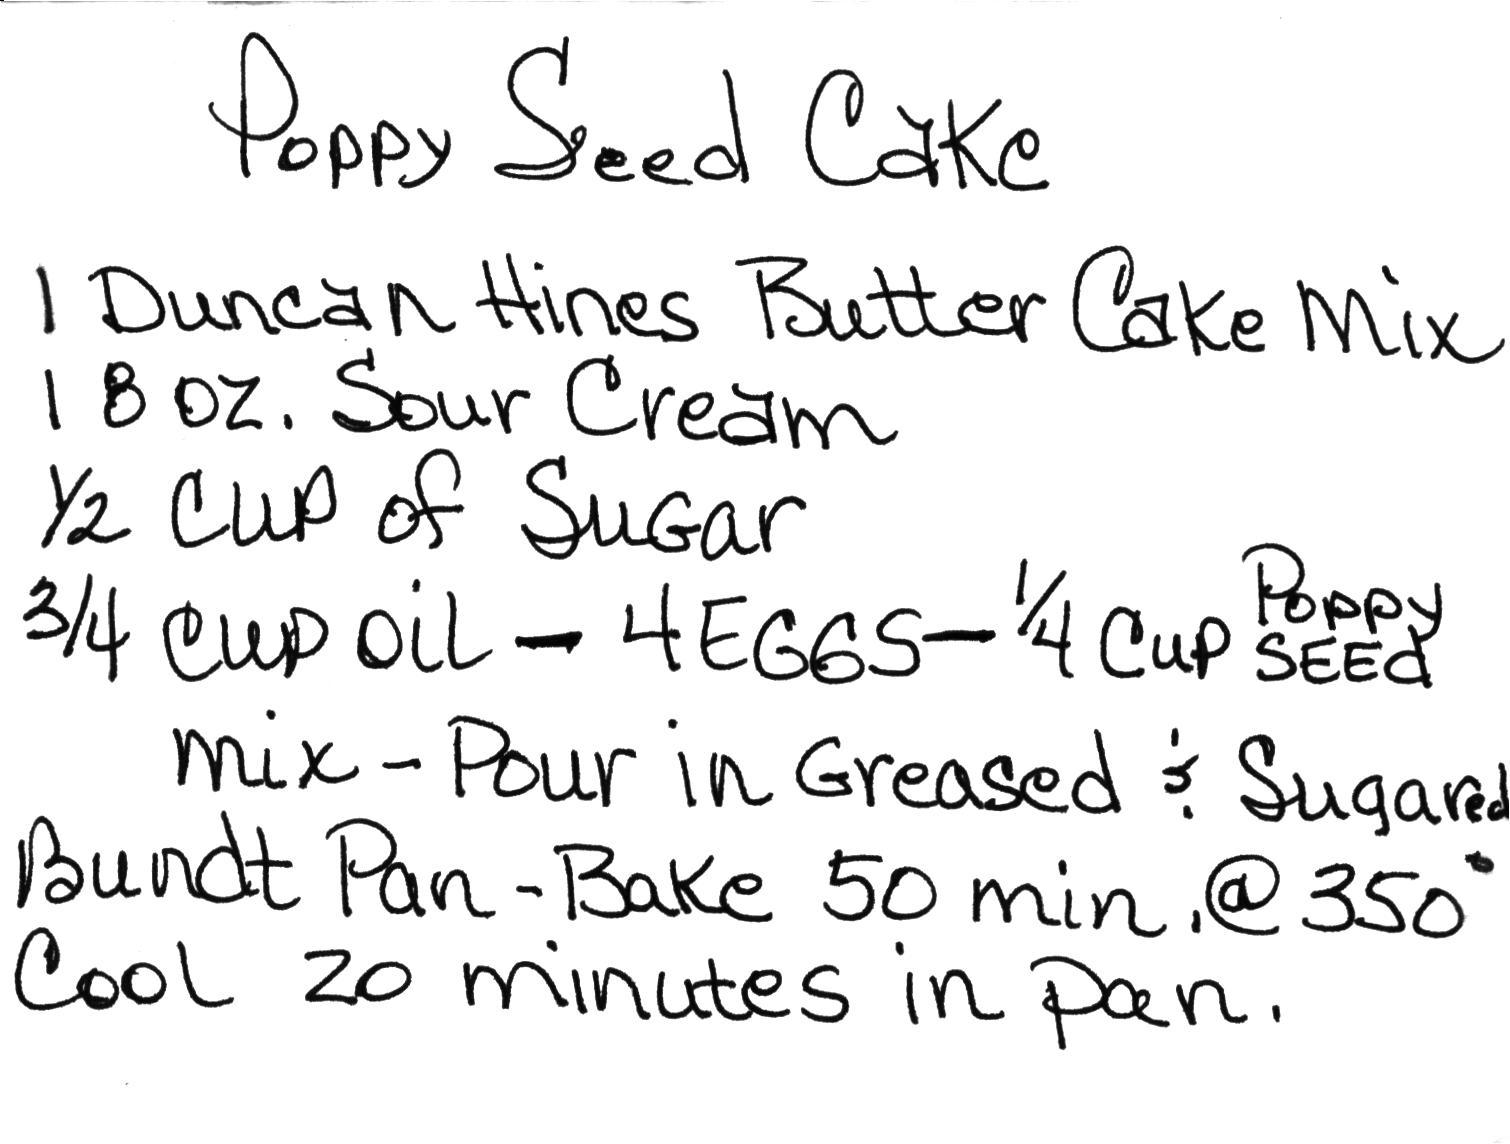 Poppy Seed Cake
1 Duncan Hines Butter Cake Mix
1 8 oz. Sour Cream
1/2 Cup of Sugar
3/4 Cup Oil - 4 EGGS - 1/4 Cup Poppy SEEd
mix - Pour in Greased & Sugared
Bundt Pan - Bake 50 min. @ 350°
Cool 20 minutes in pan.